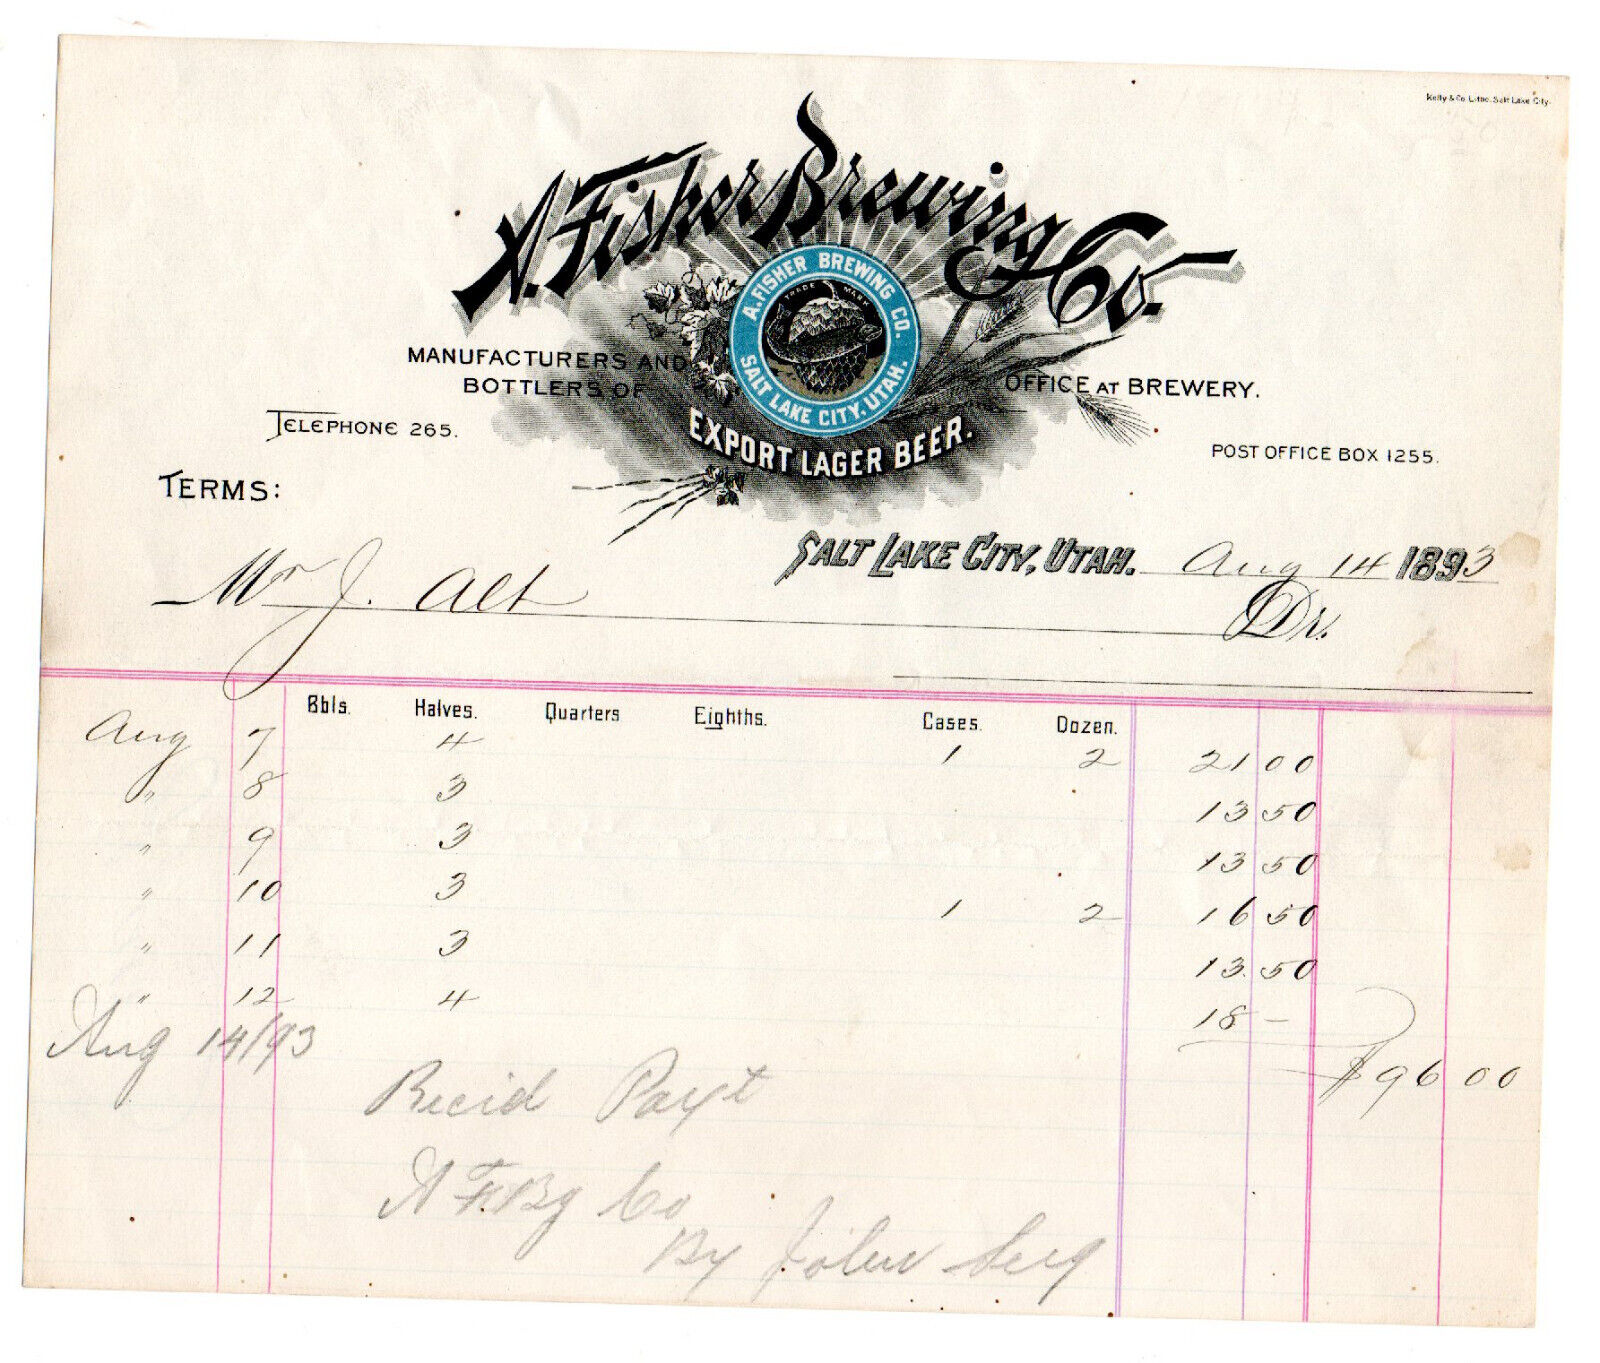 Kelly & Co. Litho. Salt Lake City.
A. Fisher Brewing Co.
A. FISHER BREWING CO.
TRADE MARK
SALT LAKE CITY, UTAH.
MANUFACTURERS AND
BOTTLERS OF
EXPORT LAGER BEER.
OFFICE AT BREWERY.
TELEPHONE 265.
POST OFFICE BOX 1255.
TERMS:
SALT LAKE CITY, UTAH. Aug 14 1893
Mr J. Alt Dr.
Bbls. Halves. Quarters Eighths. Cases. Dozen.
Aug 7 4 1 2 21 00
" 8 3 13 50
" 9 3 13 50
" 10 3 1 2 16 50
" 11 3 13.50
" 12 4 18 -
$96 00
Aug 14/93
Recid Payt
A F. Bg Co
By John